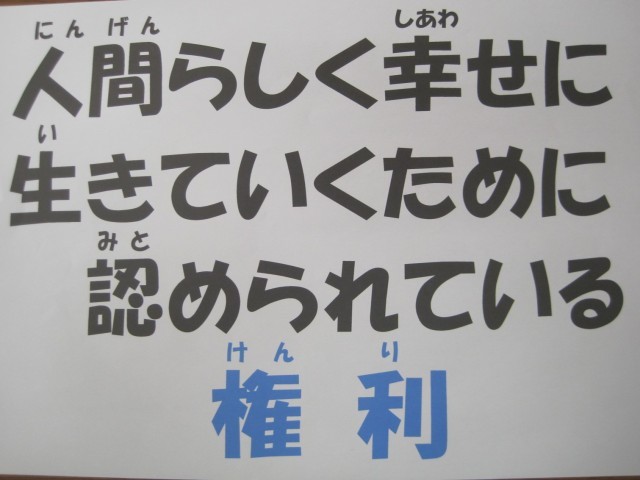 にんげん しあわ
人間らしく幸せに
い
生きていくために
みと
認められている
けん り
権利